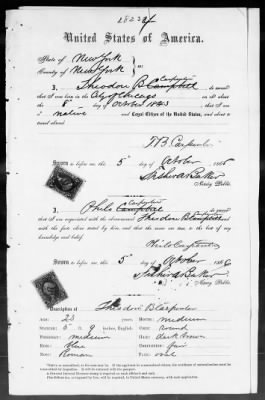 28234
United States of America.
State of New York
County of New York } ss:
Carpenter
I, Theodore B Campbell do swear
that I was born in the City of Chicago on or about
the 8 day of October 1843 that I am
a native and Loyal Citizen of the United States, and about to
travel abroad.
T B Carpenter
Sworn to before me, this 5 day of October 1866
Notary Public.
Carpenter
I, Philo Campbell do swear
that I am acquainted with the above-named Theodore B Campbell and
with the facts above stated by him, and that the same are true, to the best of my
knowledge and belief.
Philo Carpenter
Sworn to before me, this 5 day of October 1866
Notary Public.
Description of Theodore B Carpenter
Age: 23
Mouth: medium
Stature: 5 ft 9 inches, English.
Chin: round
Forehead: medium
Hair: dark brown
Eyes: Blue
Complexion: fair
Nose: Roman
Face: oval